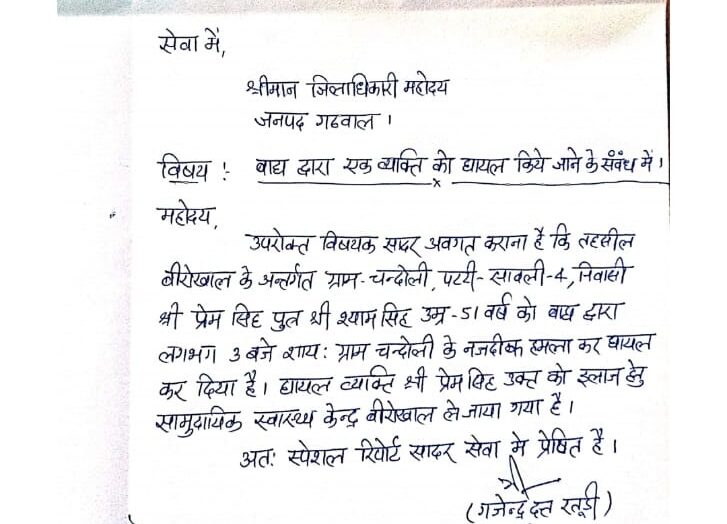 सेवा में,
श्रीमान जिलाधिकारी महोदय
जनपद गढवाल ।
विषय :- बाघ द्वारा एक व्यक्ति को घायल किये जाने के संबंध में।
x
महोदय,
उपरोक्त विषयक सादर अवगत कराना है कि तहसील
बीरोखाल के अन्तर्गत ग्राम-चन्दोली, पटटी-सावली-4, निवासी
श्री प्रेम सिह पुत्र श्री श्याम सिह उम्र-51 वर्ष को बाघ द्वारा
लगभग 3 बजे शाय: ग्राम चन्दोली के नजदीक हमला कर घायल
कर दिया है। घायल व्यक्ति श्री प्रेम सिह उक्त को इलाज हेतु
सामुदायिक स्वास्थ्य केन्द्र बीरोखाल ले जाया गया है।
अतः स्पेशल रिपोर्ट सादर सेवा मे प्रेषित है।
(गजेन्द्र दत्त रतूडी)